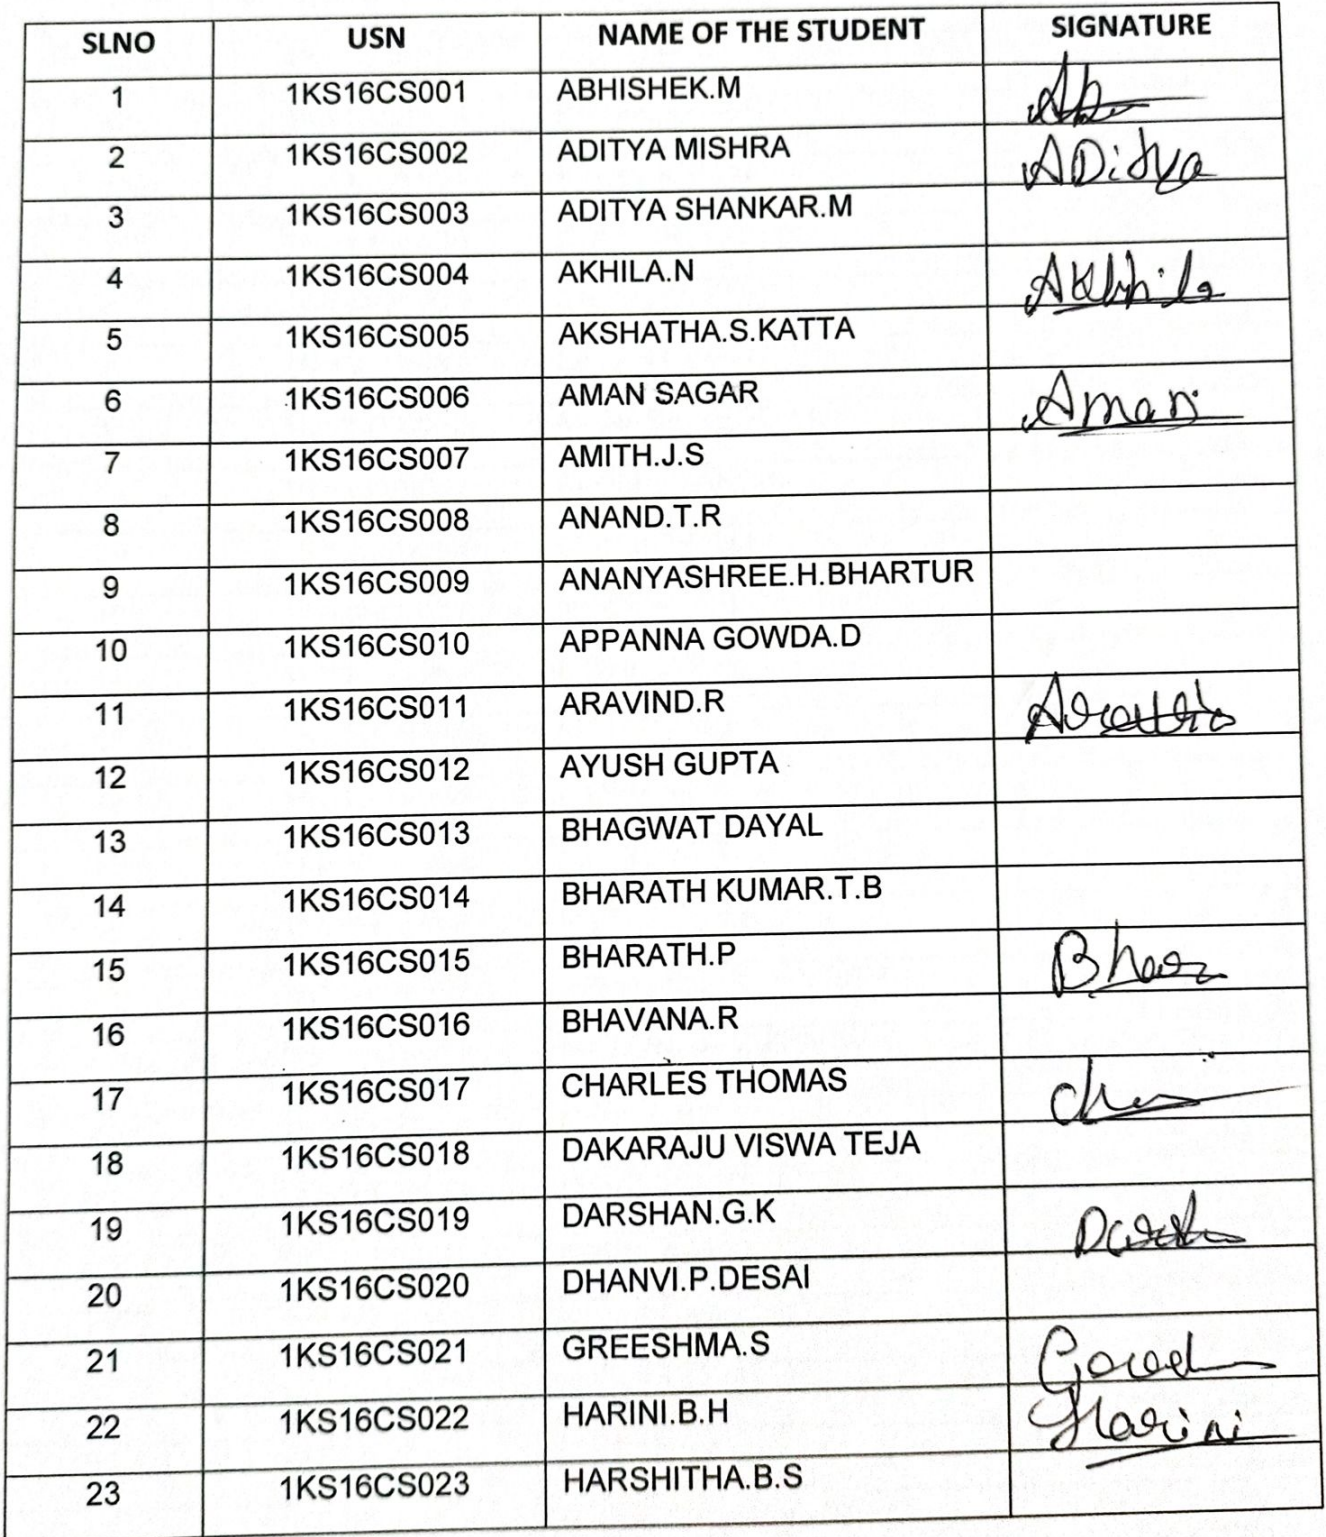 SLNO USN NAME OF THE STUDENT SIGNATURE
1 1KS16CS001 ABHISHEK.M
2 1KS16CS002 ADITYA MISHRA ADitya
3 1KS16CS003 ADITYA SHANKAR.M
4 1KS16CS004 AKHILA.N Akhila
5 1KS16CS005 AKSHATHA.S.KATTA
6 1KS16CS006 AMAN SAGAR Aman
7 1KS16CS007 AMITH.J.S
8 1KS16CS008 ANAND.T.R
9 1KS16CS009 ANANYASHREE.H.BHARTUR
10 1KS16CS010 APPANNA GOWDA.D
11 1KS16CS011 ARAVIND.R
12 1KS16CS012 AYUSH GUPTA
13 1KS16CS013 BHAGWAT DAYAL
14 1KS16CS014 BHARATH KUMAR.T.B
15 1KS16CS015 BHARATH.P
16 1KS16CS016 BHAVANA.R
17 1KS16CS017 CHARLES THOMAS
18 1KS16CS018 DAKARAJU VISWA TEJA
19 1KS16CS019 DARSHAN.G.K
20 1KS16CS020 DHANVI.P.DESAI
21 1KS16CS021 GREESHMA.S
22 1KS16CS022 HARINI.B.H Harini
23 1KS16CS023 HARSHITHA.B.S